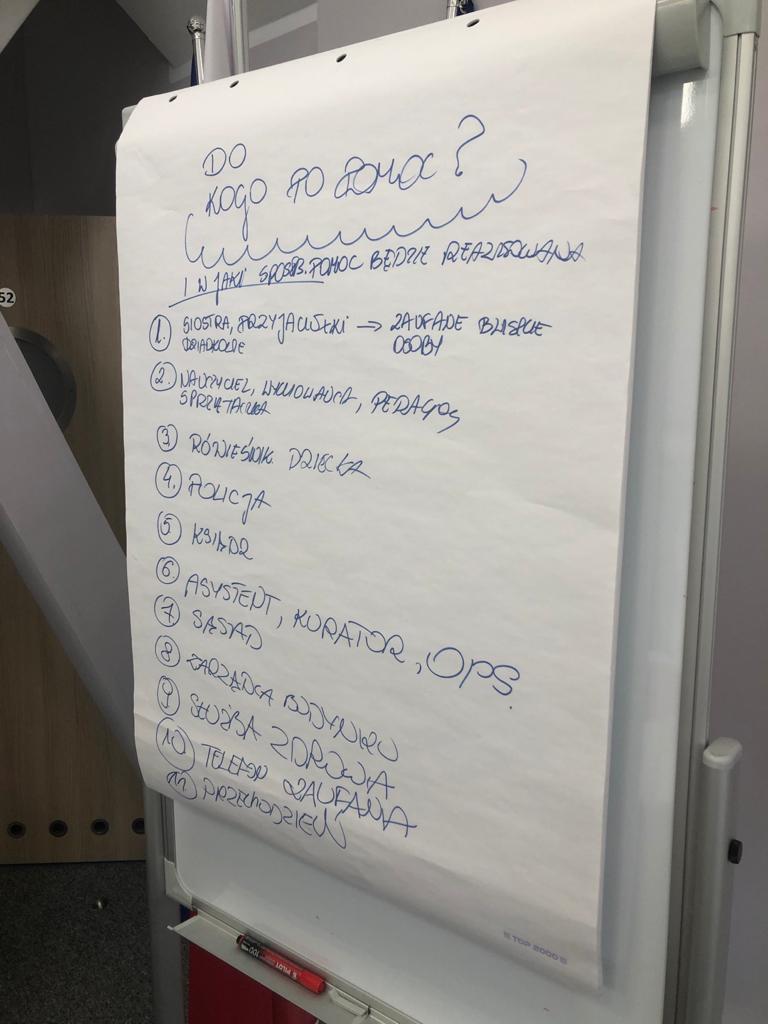 DO
KOGO PO POMOC?
I W JAKI SPOSÓB POMOC BĘDZIE REALIZOWANA
1. SIOSTRA, PRZYJACIÓŁKI → ZAUFANE BLISKIE
DZIADKOWIE OSOBY
2. NAUCZYCIEL, WYCHOWAWCA, PEDAGOG
SPRZĄTACZKA
3 RÓWIEŚNIK DZIECKA
4. POLICJA
5 KSIĄDZ
6 ASYSTENT, KURATOR, OPS.
7 SĄSIAD
8 ZARZĄDCA BUDYNKU
9 SŁUŻBA ZDROWA
10 TELEFON ZAUFANIA
11 PRZECHODZIEŃ
TOP 2000
PILOT
100
52